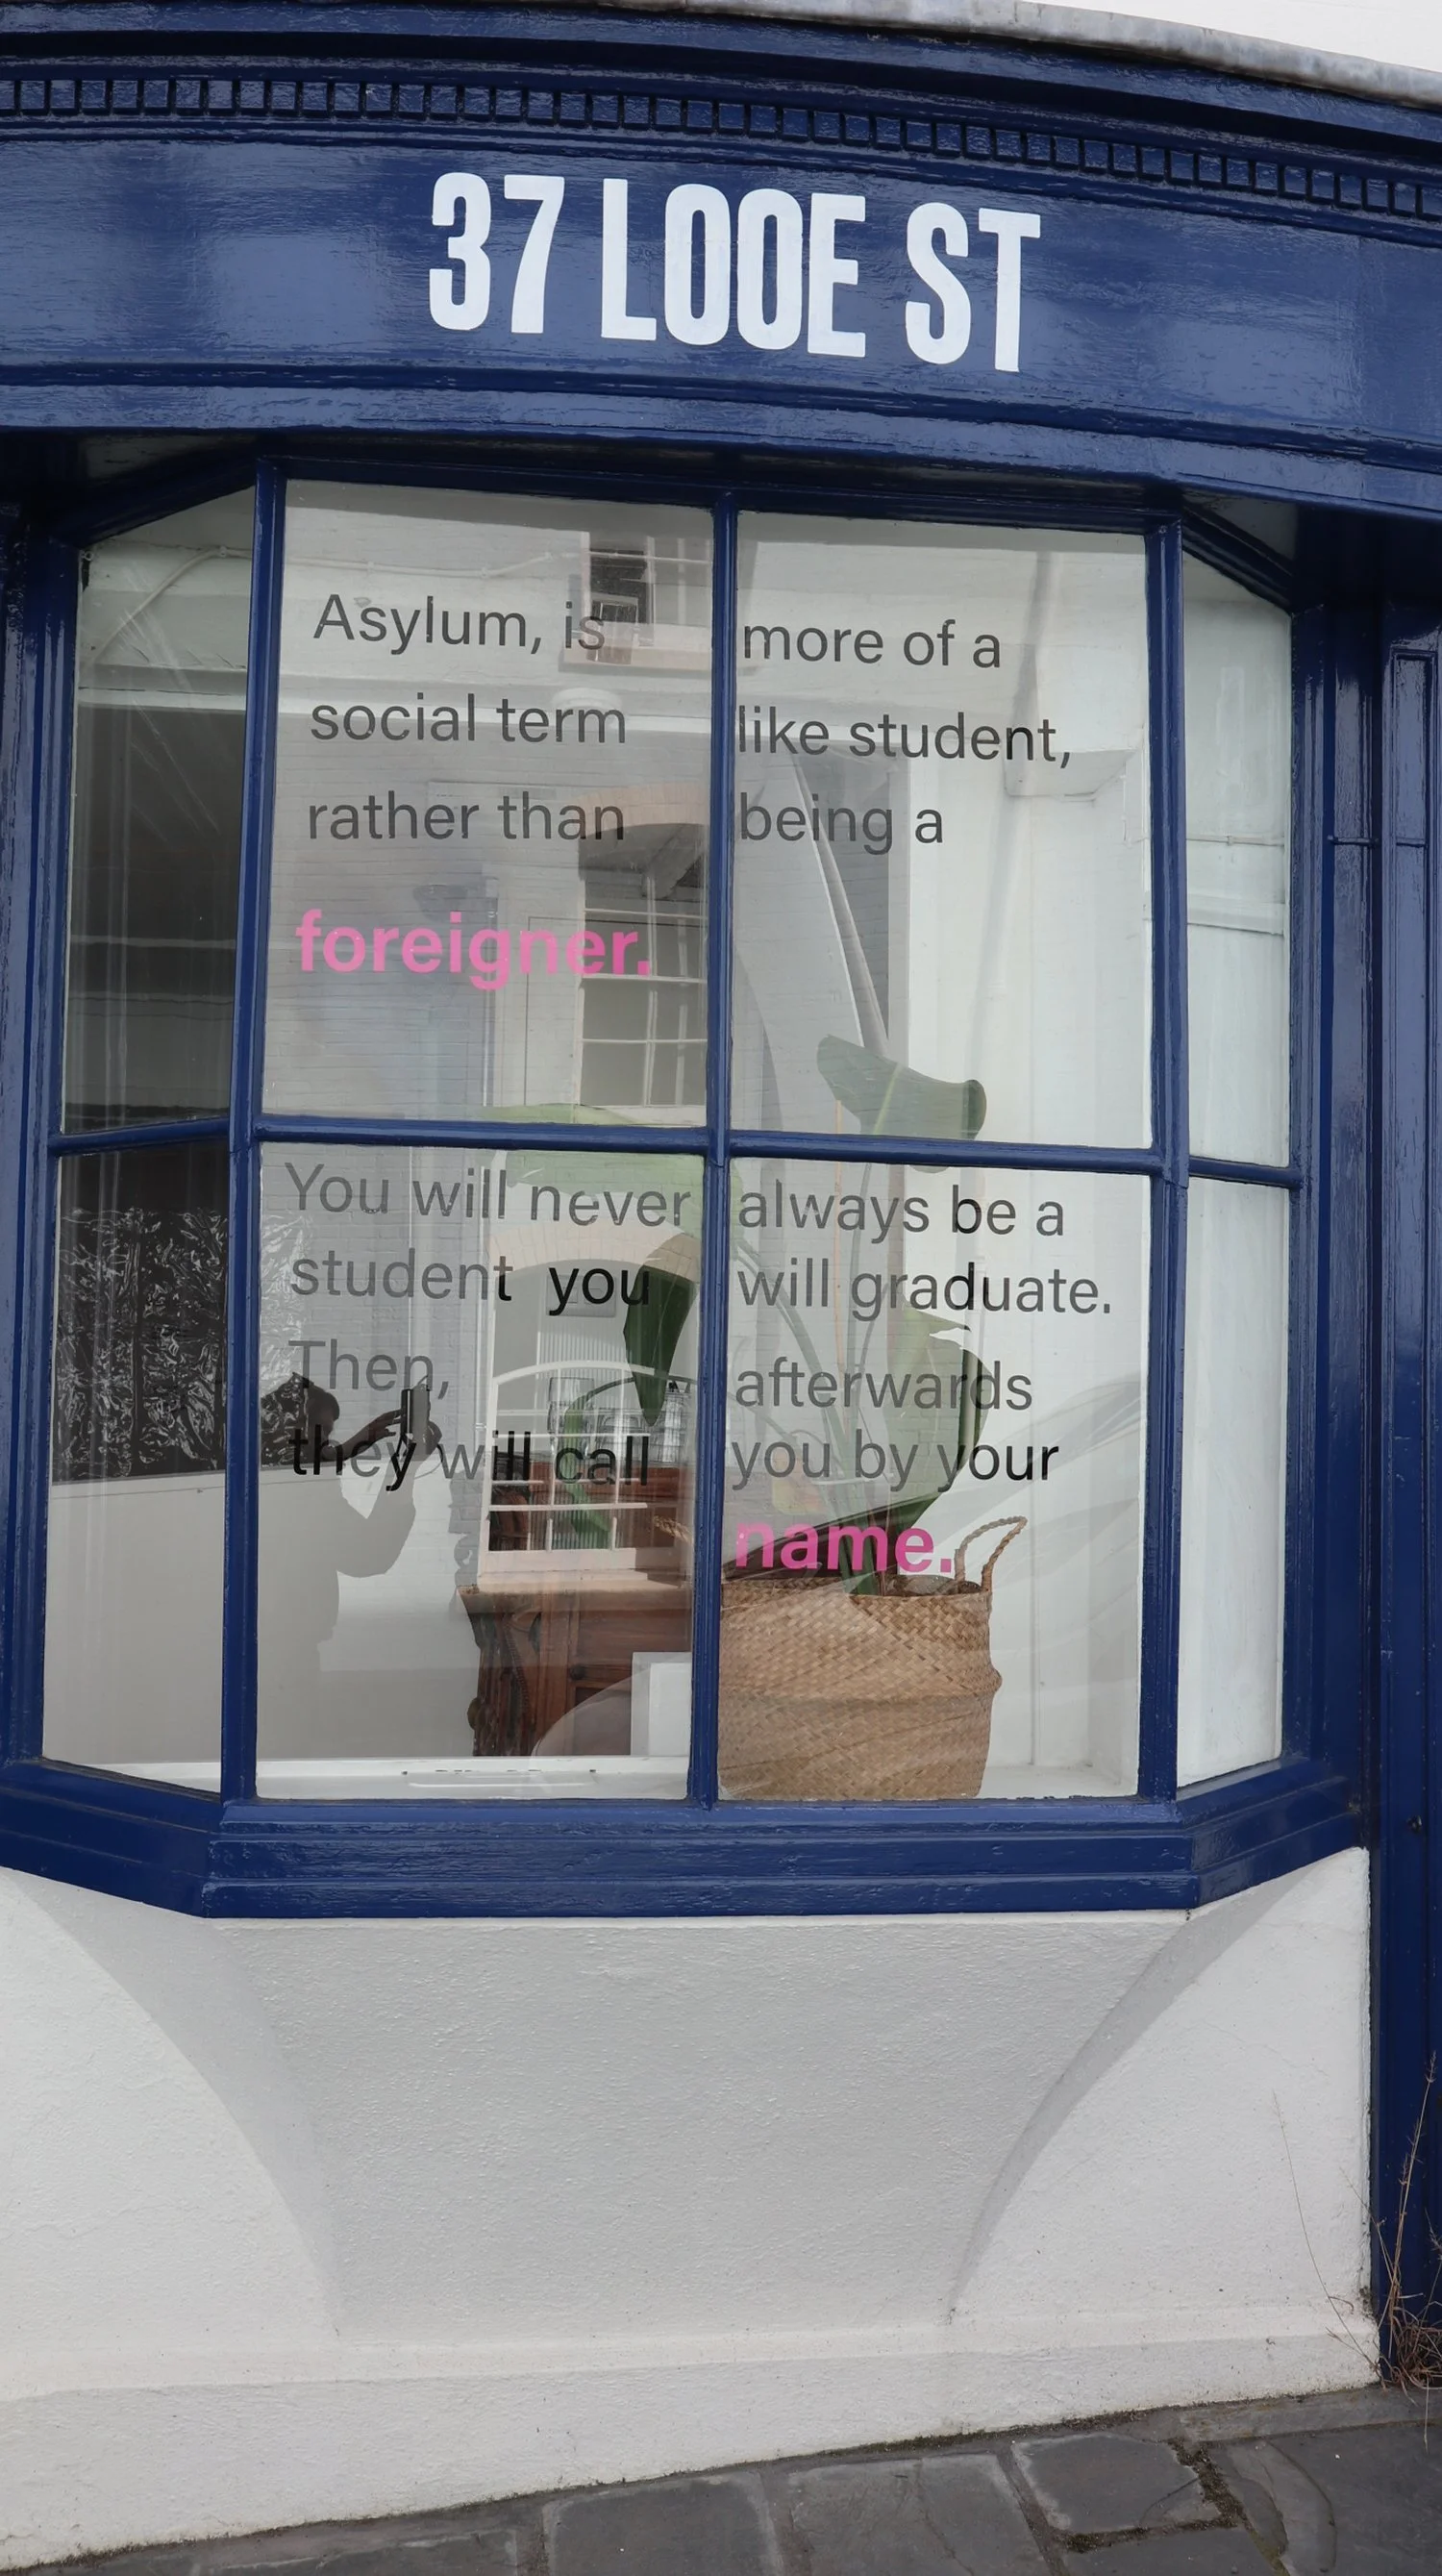 37 LOOE ST
Asylum, is more of a
social term like student,
rather than being a
foreigner.
You will never always be a
student you will graduate.
Then, afterwards
they will call you by your
name.